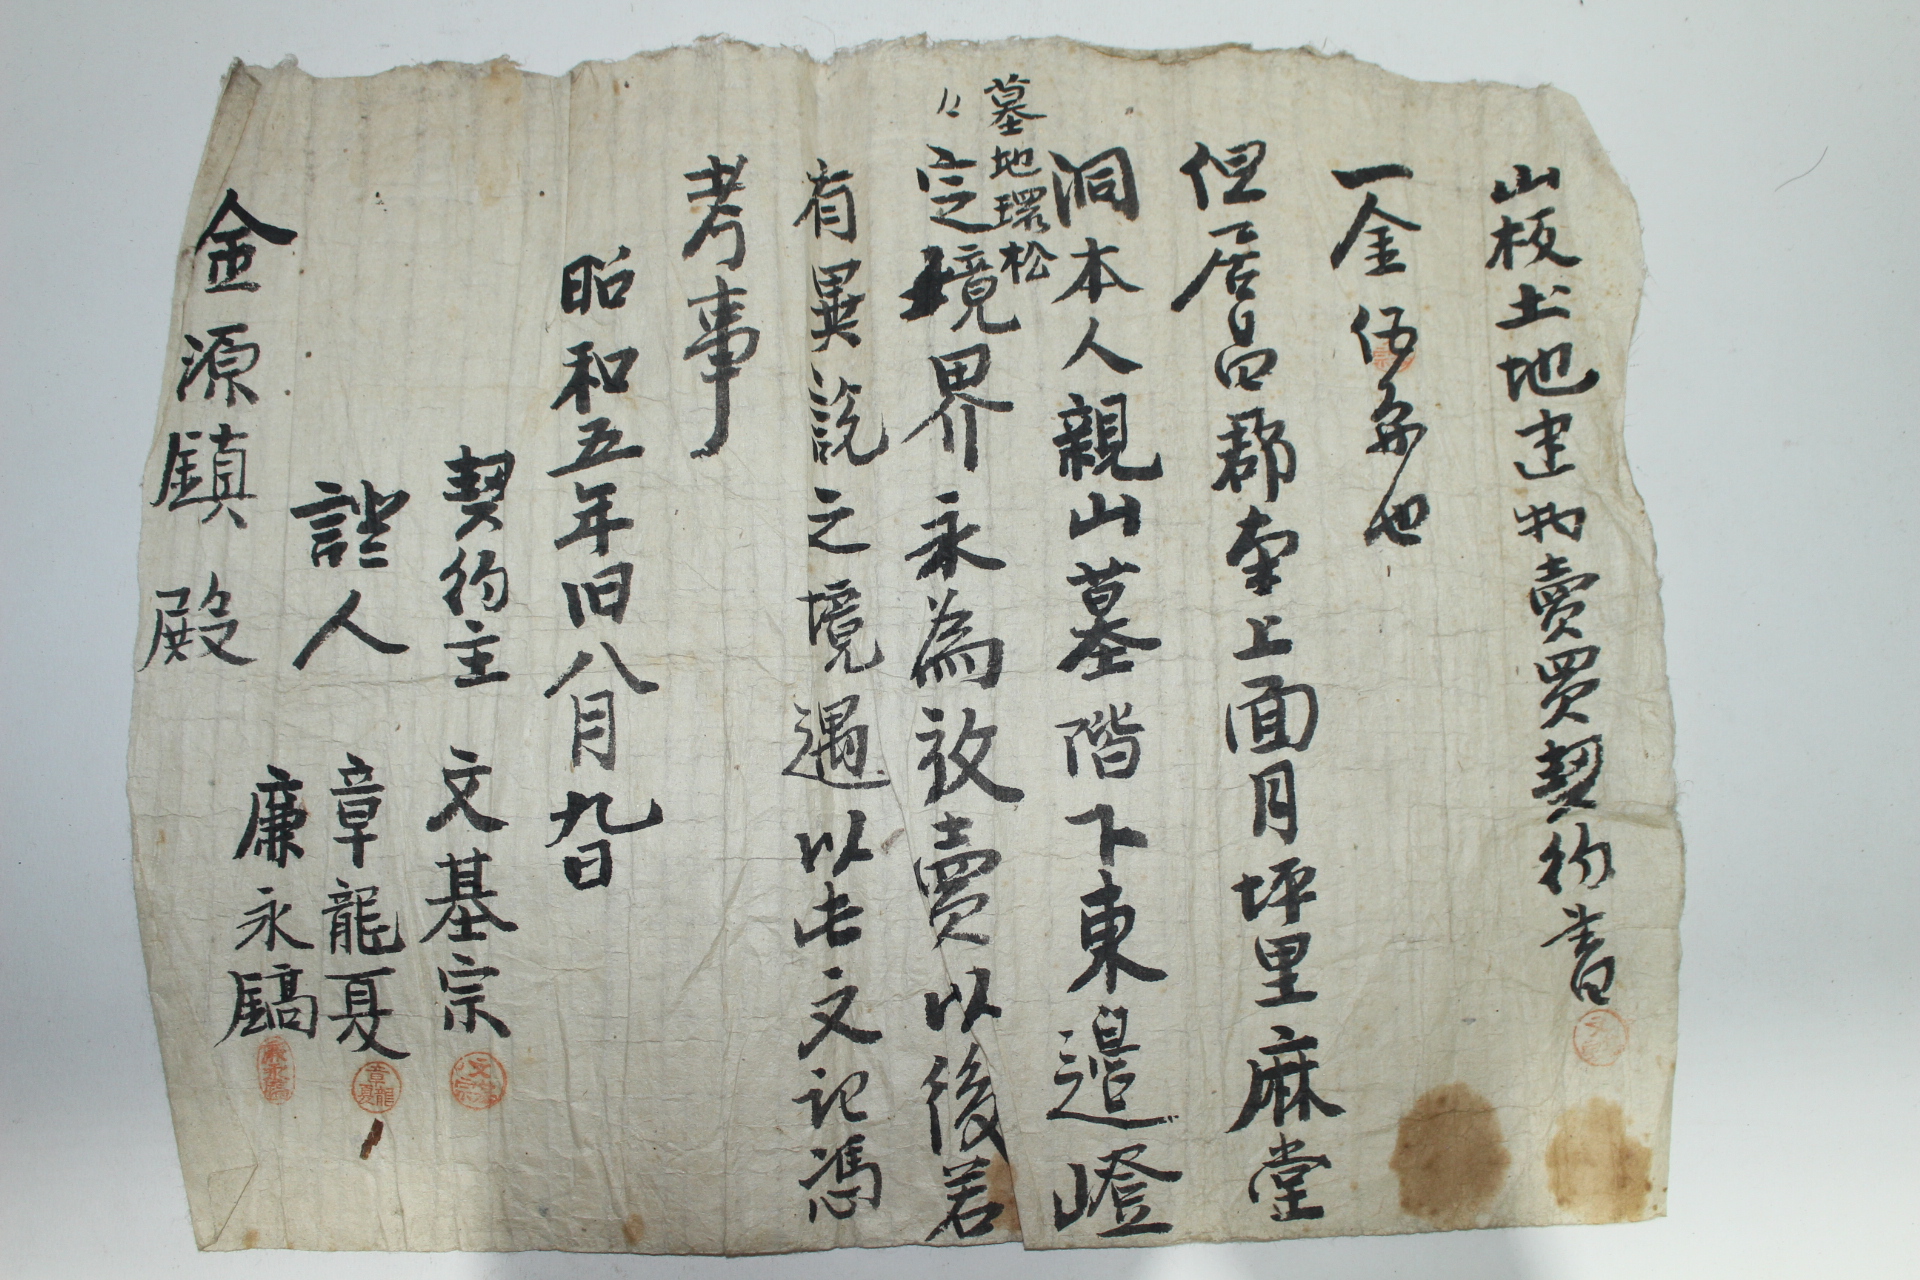 山板土地建物賣買契約書
一金伍円也
但居昌郡南上面月坪里麻堂
洞本人親山墓階下東邉嶝
墓地環松
〃定境界永為放賣以後若
有異説之境遇以此文記憑
考事
昭和五年旧八月九日
契約主 文基宗
證人 章龍夏
廉永鎬
金源鎮 殿